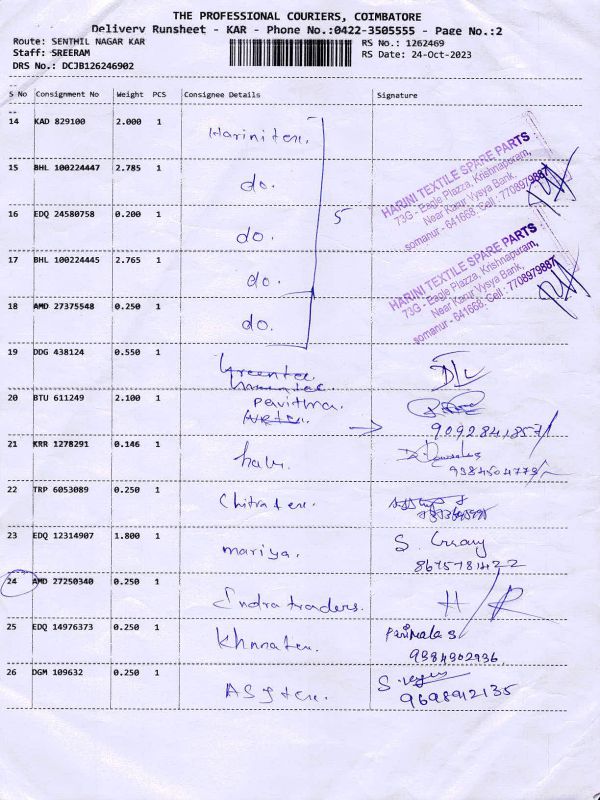 THE PROFESSIONAL COURIERS, COIMBATORE
Delivery Runsheet - KAR - Phone No.:0422-3505555 - Page No.:2
Route: SENTHIL NAGAR KAR
RS No.: 1262469
Staff: SREERAM
RS Date: 24-Oct-2023
DRS No.: DCJB126246902
S No Consignment No Weight PCS Consignee Details Signature
14 KAD 829100 2.000 1 Harinitex.
HARINI TEXTILE SPARE PARTS
73G - Eagle Plazza, Krishnapuram,
Near Karur Vysya Bank,
somanur - 641668. Cell : 7708979887
15 BHL 100224447 2.785 1 do.
5
16 EDQ 24580758 0.200 1 do.
HARINI TEXTILE SPARE PARTS
73G - Eagle Plazza, Krishnapuram,
Near Karur Vysya Bank,
somanur - 641668. Cell : 7708979887
17 BHL 100224445 2.765 1 do.
18 AMD 27375548 0.250 1 do.
19 DDG 438124 0.550 1
20 BTU 611249 2.100 1 Pavithra.
9092841857
21 KRR 1278291 0.146 1
9384504779
22 TRP 6053089 0.250 1 Chitratex.
23 EDQ 12314907 1.800 1 mariya. S.
8675781422
24 AMD 27250340 0.250 1 Indra traders. H R
25 EDQ 14976373 0.250 1 Parimala S
9384902936
26 DGM 109632 0.250 1 S.
9698912135